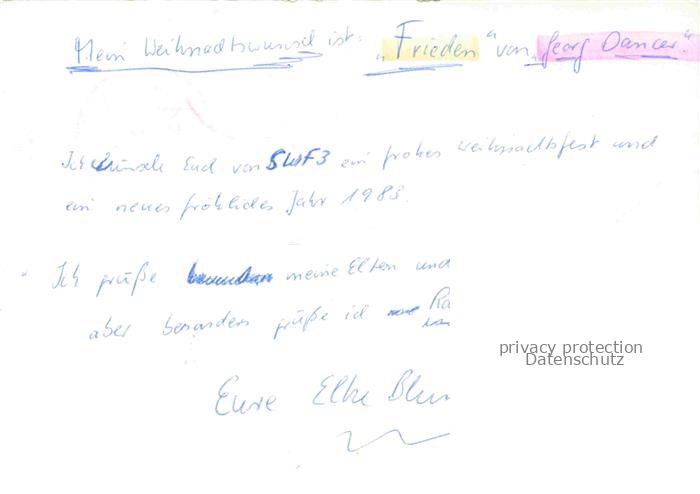 Mein Weihnachtswunsch ist: „Frieden“ von „Georg Dancer.“
Ich wünsche Euch von SWF3 ein frohes Weihnachtsfest und
ein neues fröhliches Jahr 1983.
Ich grüße meine Eltern und
aber besonders grüße ich Ra
Eure Elke Blum
privacy protection
Datenschutz